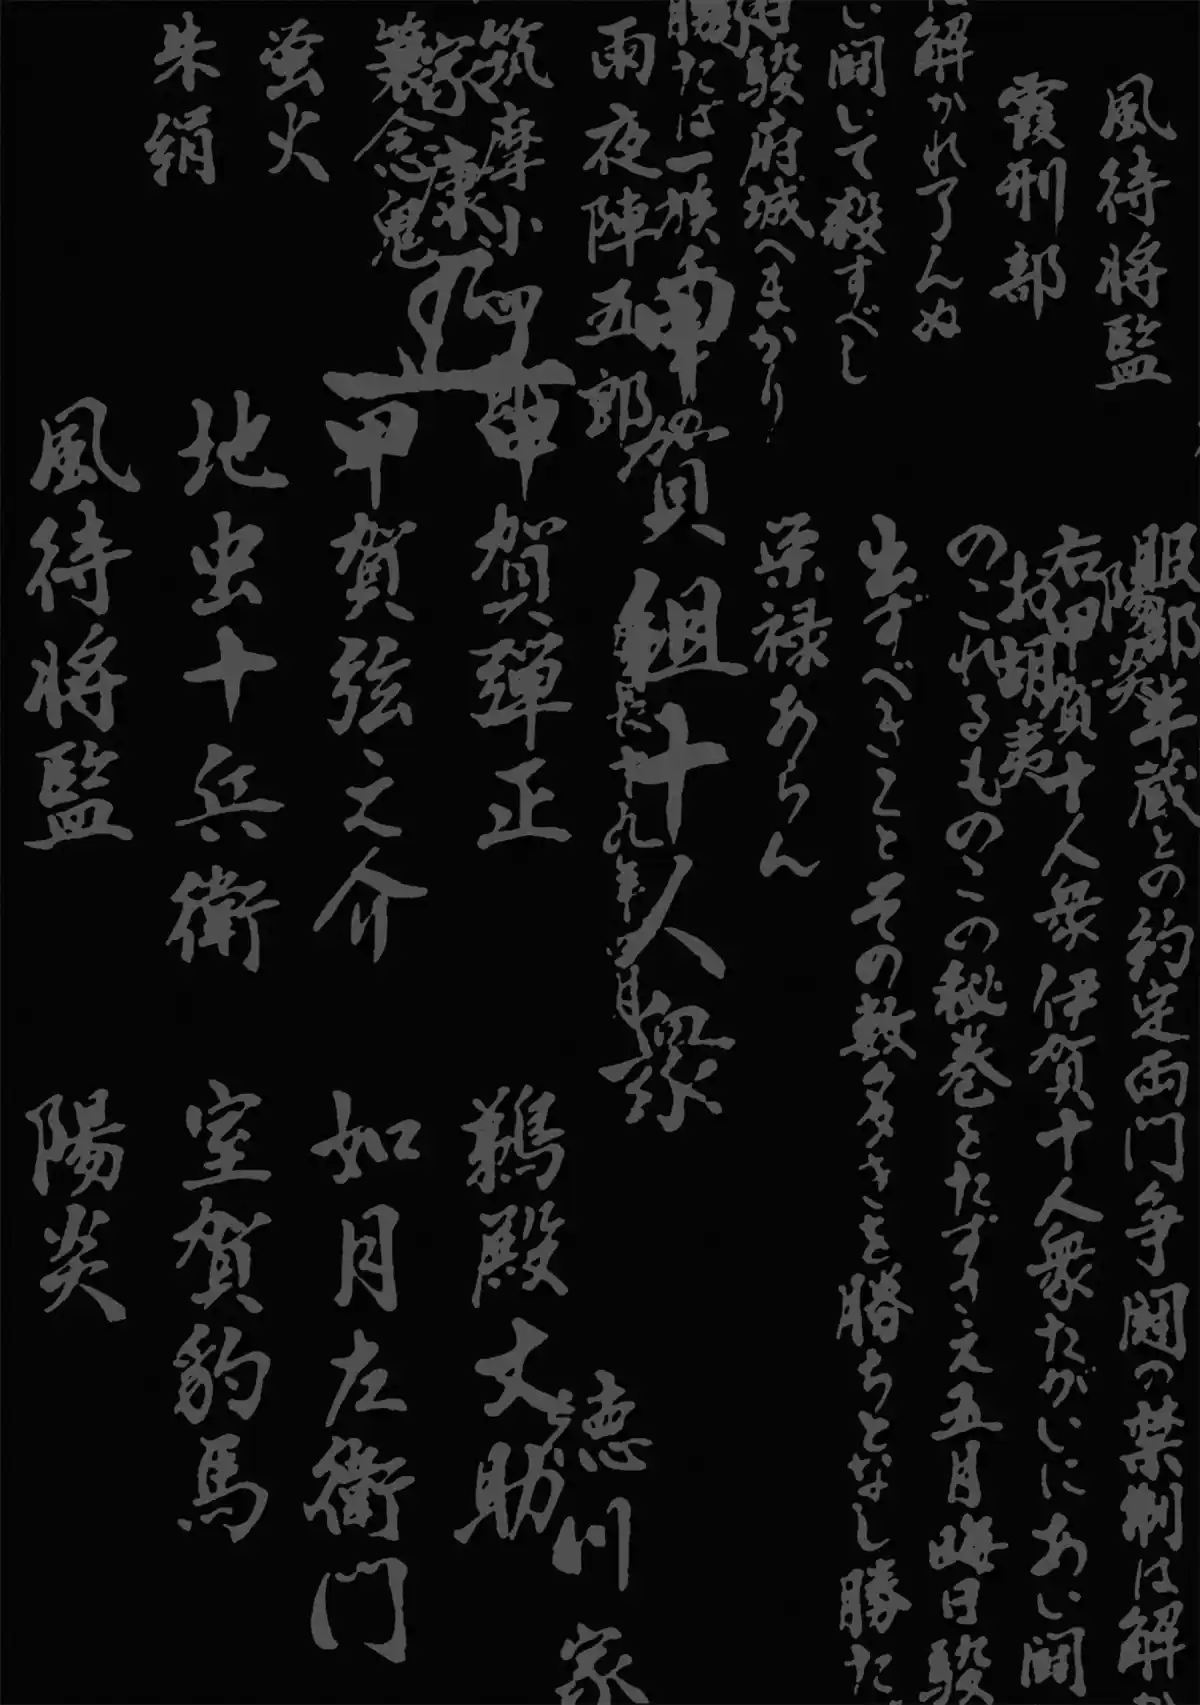 風待将監
霞刑部
に解かれ了んぬ
い闘いて殺すべし
日駿府城へまかり
勝たば一族
雨夜陣五郎
筑摩小四郎
家康
簑念鬼
蛍火
朱絹
服部半蔵との約定両門争闘の禁制は解か
陽炎
右甲賀十人衆伊賀十人衆たがいにあい闘
お胡夷
のこれるものこの秘巻をたずさえ五月晦日駿
出ずべきことその数多きを勝ちとなし勝たば
栄禄あらん
甲賀組十人衆
慶長十九年四月
徳川家
甲賀弾正
甲賀弦之介
地虫十兵衛
風待将監
鵜殿丈助
如月左衛門
室賀豹馬
陽炎